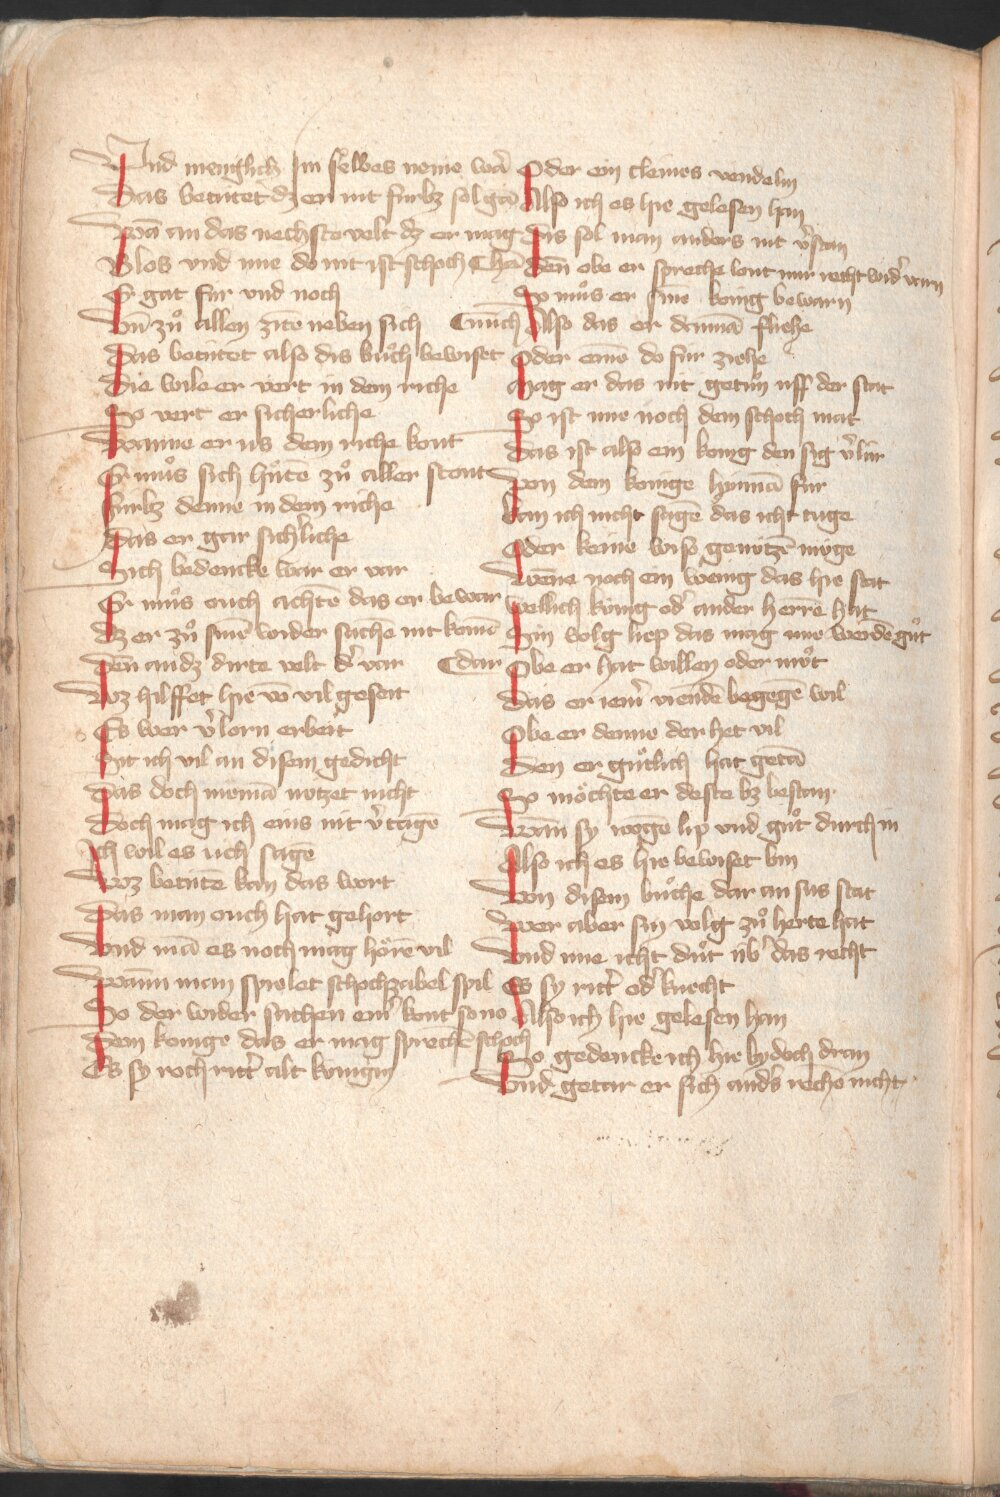 Vnd menglich Im selbes neme war̄
Das betútet dz er nit fúrbz sol gā
Wā an das nechste velt dz er mag
Blos vnd ime do nit ist schoch Chā
Er gat fúr vnd noch
Vn̄ zů allen zitē neben sich ⸿mich
Das betútet also dis bůch bewiset
Die wile er vert in dem riche
So vert er sicherliche
Wanne er us dem riche kont
Er můs sich hůtē zů aller stont
fúrbz denne in dem riche
Das er gar sichʼliche
Sich bedencke war er var
Er můs ouch achtē das er bewar
Dz er zů sinē wider sachē nit komē
Den an dz dirte velt dʼ var ⸿dar
Wz hilffet hie vō vil geseit
Es wer vʼlorn erbeit
Dit ich vil an disem gedicht
Das doch niemā nútzet nicht
Doch mag ich eins nit vʼtagē
Ich wil es úch sagē
Wz betútē kan das wort
Das man ouch hat gehort
Vnd mā es noch mag hörē vil
Wann man spielet schochzabel spil
So der wider sachen einʼ kont so no
Dem konige das er mag sprechē schoch
Es sy roch rittʼ alt kónigin
Oder ein cleines vendelin
Also ich es hie gelesen han
Dis sol man anders nit vʼstan
Den̄ obe er spreche lont mir recht widʼ varn
So můs er sine konig bewarn
Also das er dannā fliehe
Oder eine do fúr ziehe
Mag er das nit getůn uff der stat
So ist ime noch dem schoch mat
Das ist also ein konig den sig vʼlúr
Von dem konige hynnā fúr
kan ich nicht sagē das icht tuge
Oder keine wise genútzē muge
Wēne noch ein wenig das hie stat
Wellich kónig odʼ ander herrē hat
Sin volg liep das mag ime werdē gůt
Obe er hat willen oder můt
Das er iemʼ viendē begegē wil
Obe er denne der het vil
Den er gůtlich hat getā
So möchte er deste bz bestan
Wann sy wogē lip vnd gůt durch in
Also ich es hie bewiset bin
Von disem bůche dar an sus stat
Wer aber sin volg zů herte hat
Vnd ime icht důt úbʼ das recht
Es sy rittʼ odʼ knecht
Also ich hie gelesen han
So gedencke ich hie by doch dran
Vnd getar er sich andʼs rechē nicht